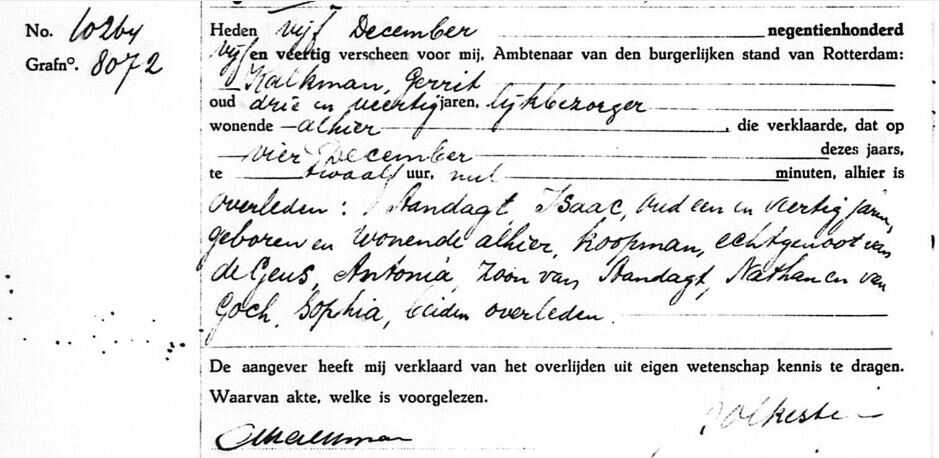 No. 10264
Grafn°. 8072
Heden vijf December negentienhonderd
vijf en veertig verscheen voor mij, Ambtenaar van den burgerlijken stand van Rotterdam:
Kalkman, Gerrit
oud drie en veertig jaren, lijkbezorger
wonende alhier, die verklaarde, dat op
vier December dezes jaars,
te twaalf uur, nul minuten, alhier is
overleden: Aandagt, Isaac, oud een en veertig jaren,
geboren en wonende alhier, koopman, echtgenoot van
de Geus, Antonia, zoon van Aandagt, Nathan en van
Goch, Sophia, beiden overleden.
De aangever heeft mij verklaard van het overlijden uit eigen wetenschap kennis te dragen.
Waarvan akte, welke is voorgelezen.